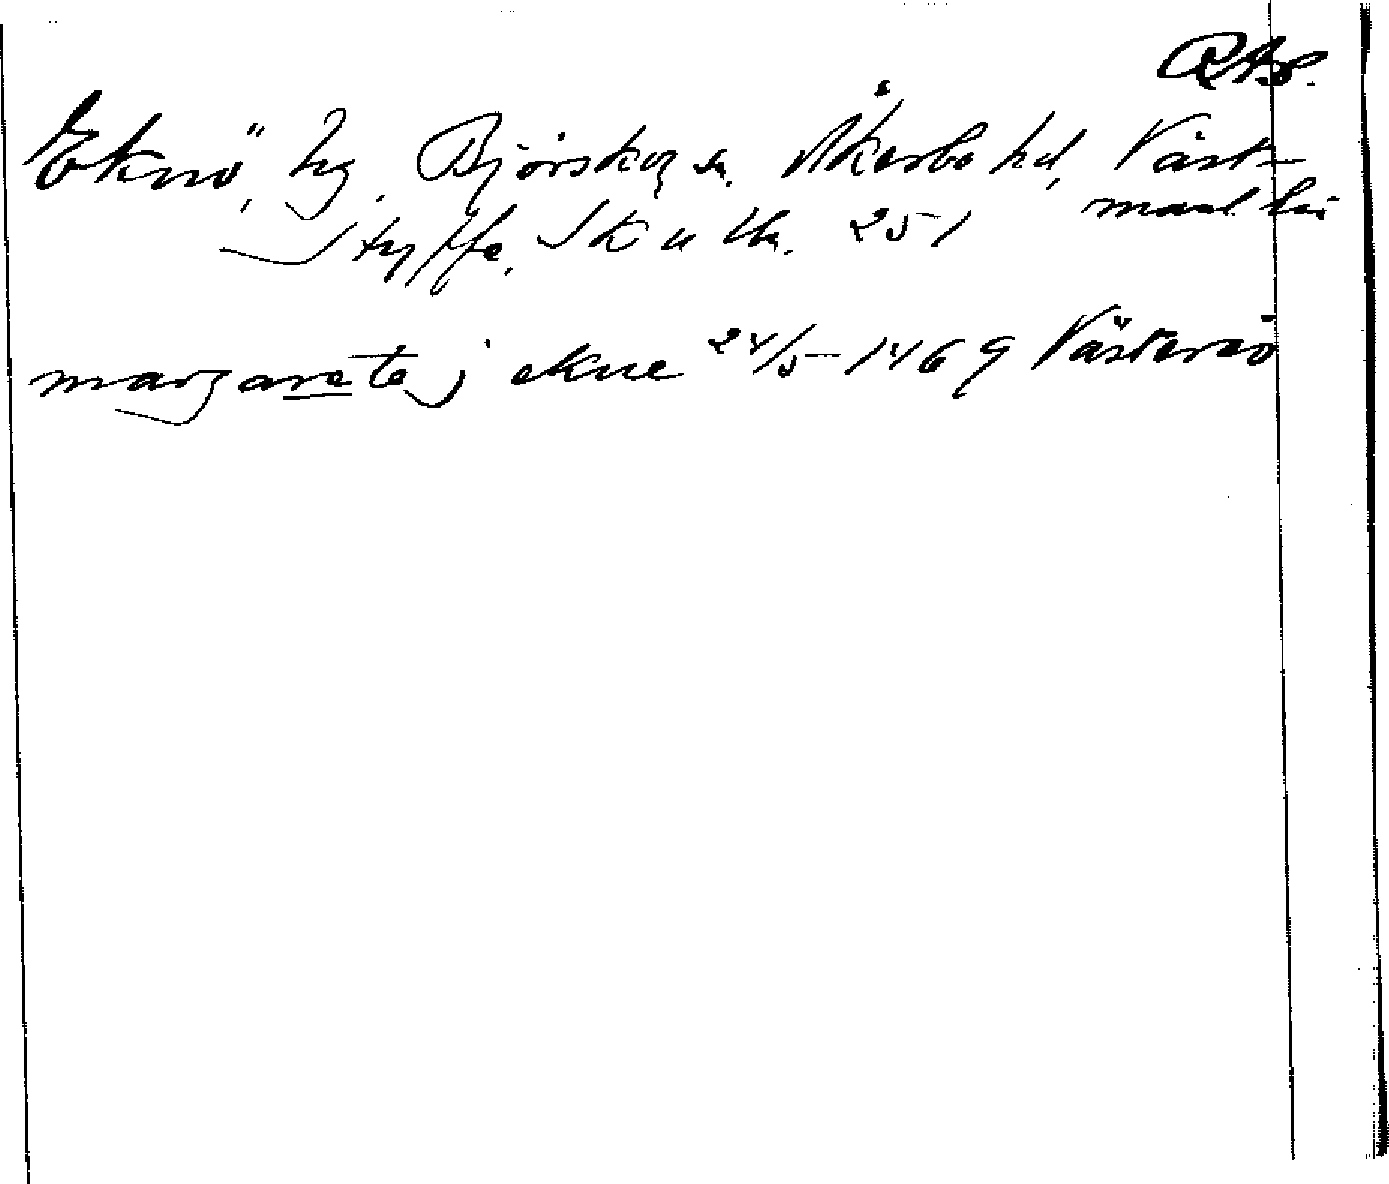 RAp.
Eknö, hg. Björskog sn. Åkerbo hd, Väst-
manl. län
Styffe, Sk u Un. 251
margarete j ekne 24/5 1469 Västerås